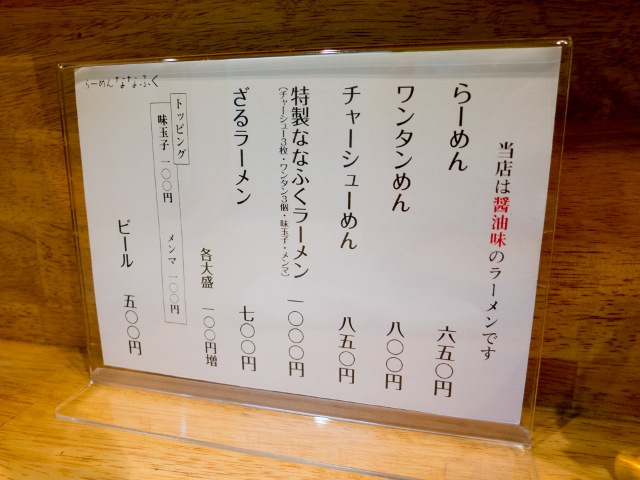 当店は醤油味のラーメンです
らーめん 六五〇円
ワンタンめん 八〇〇円
チャーシューめん 八五〇円
特製ななふくラーメン 一〇〇〇円
（チャーシュー3枚・ワンタン3個・味玉子・メンマ）
ざるラーメン 七〇〇円
各大盛 一〇〇円増
トッピング
味玉子 一〇〇円 メンマ 一〇〇円
ビール 五〇〇円
らーめんななふく